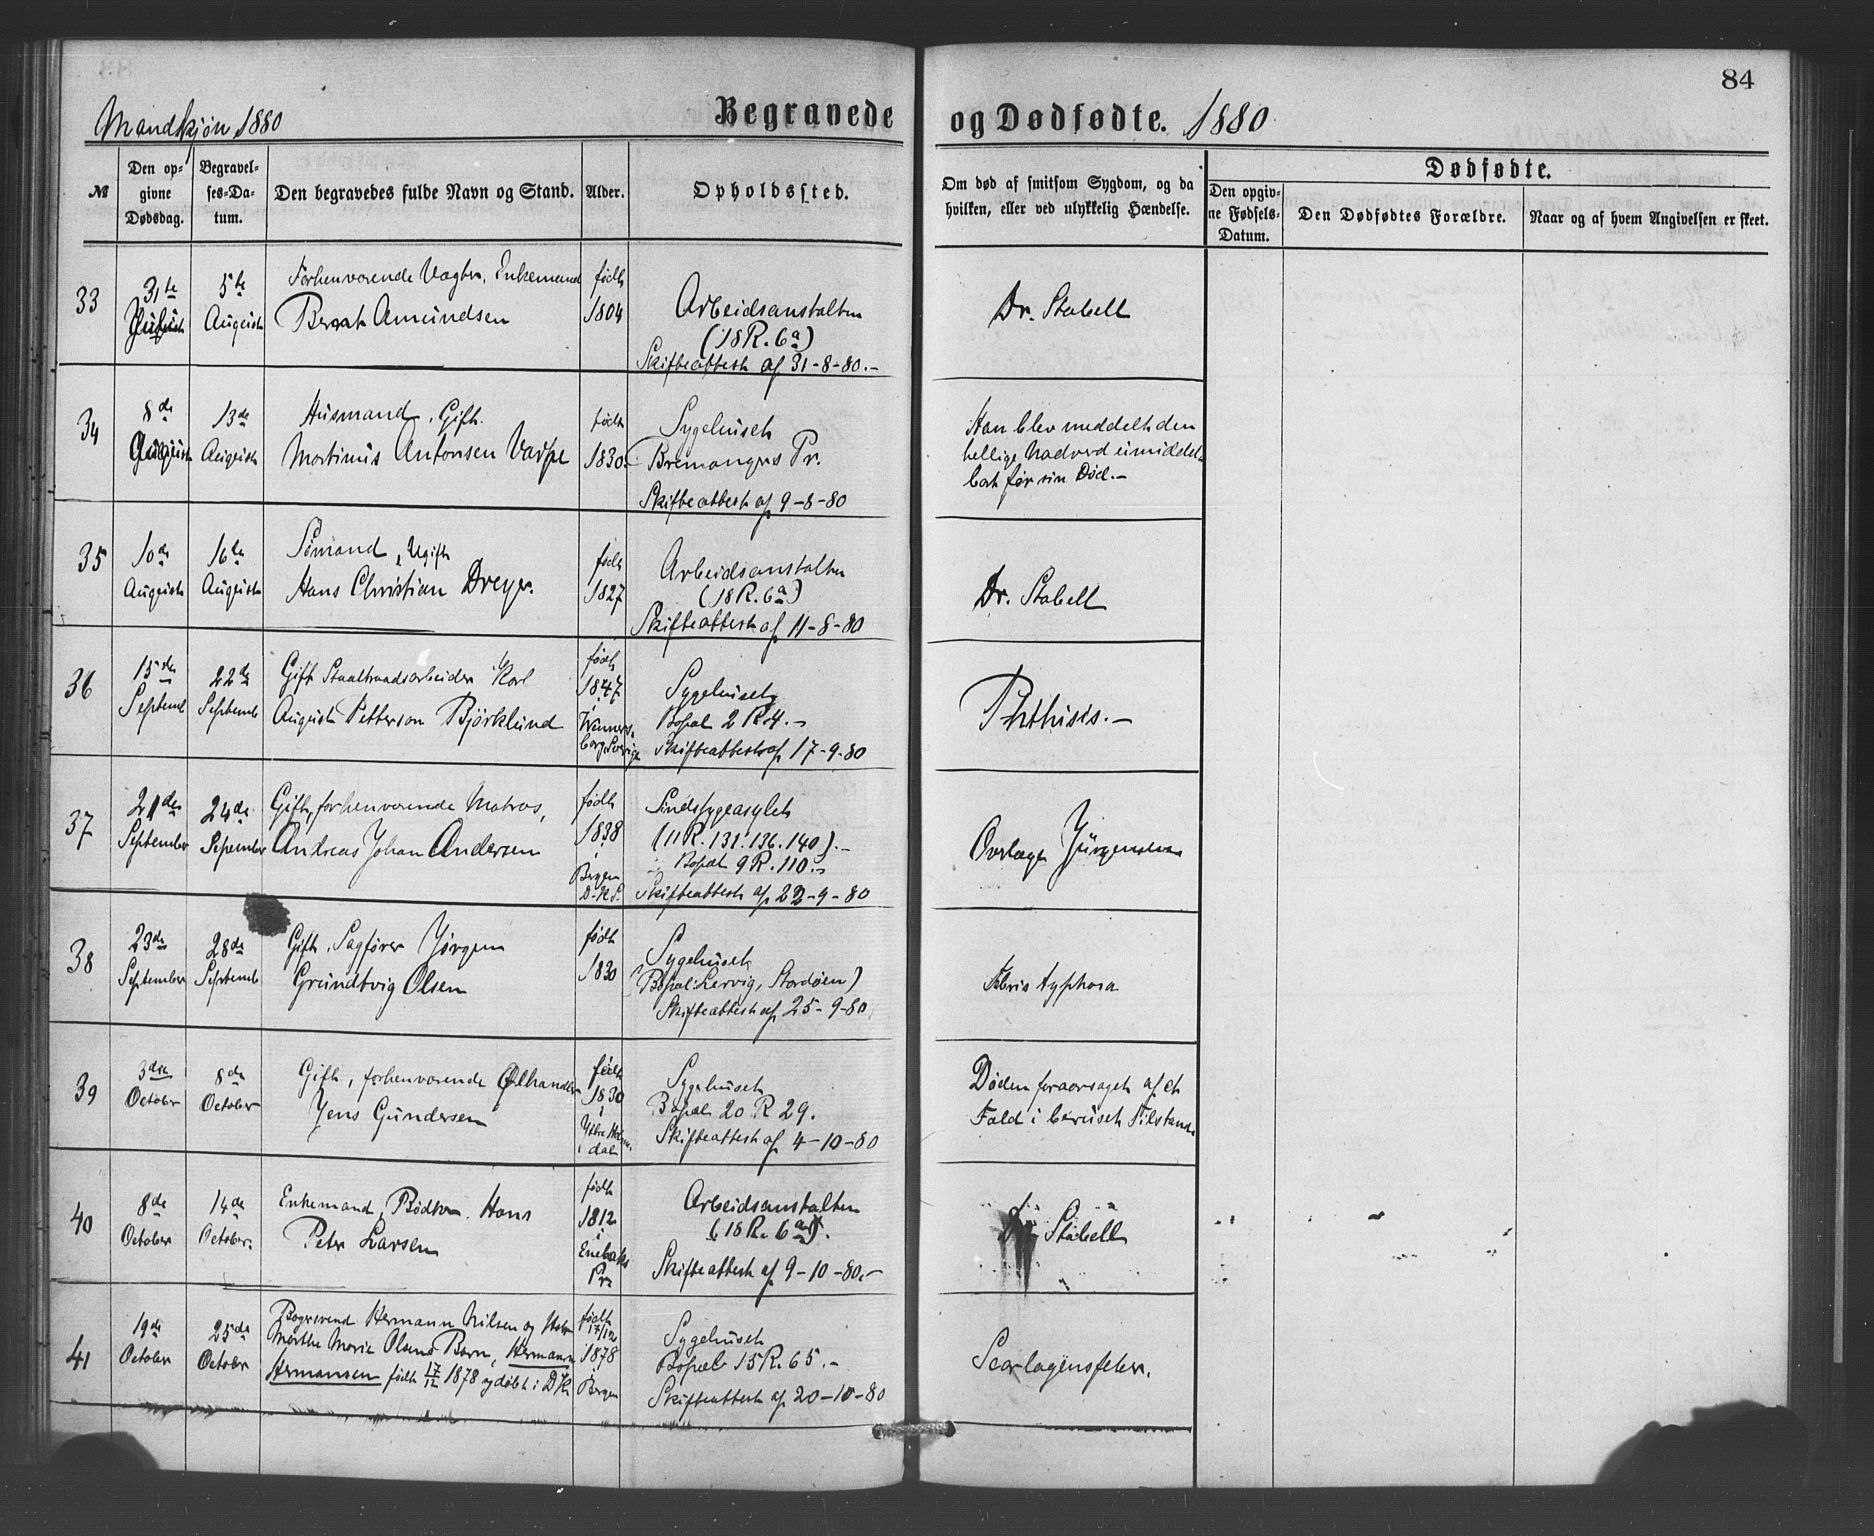 84
Mandkjøn 1880
Begravede og Dødfødte. 1880
№
Den op-
givne
Dødsdag.
Begravel-
ses-Da-
tum.
Den begravedes fulde Navn og Stand.
Alder.
Opholdssted.
Om død af smitsom Sygdom, og da
hvilken, eller ved ulykkelig Hændelse.
Dødfødte.
Den opgiv-
ne Fødsels-
Datum.
Den Dødfødtes Forældre.
Naar og af hvem Angivelsen er skeet.
33
31te
5te
August
Forhenværende Vægter, Enkemand
Berent Amundsen
født
1804
Arbeidsanstalten
(18 R. 6a)
Skifteattest af 31-8-80.-
Dr. Stabell
34
8de
August
13de
August
Husmand, Gift.
Mortinus Antonsen
født
1830.
Sygehuset
Bremangers Pr.
Skifteattest af 9-8-80
Han blev meddelt den
hellige Nadverd umiddel-
bart før sin Død.-
35
10de
August
16te
August
Sømand, Ugift
Hans Christian Dreyer.
født
1827
Arbeidsanstalten
(18 R. 6a)
Skifteattest af 11-8-80
Dr. Stabell
36
15de
Septemb
22de
Septemb
Gift Staaltraadsarbeider Karl
August Petterson Bjørklund
født
1847
i
Wenners-
borg Sverige
Sygehuset
Bopæl 2 R. 4.-
Skifteattest af 17-9-80
Phthisis.-
37
21de
September
24de
Sepember
Gift, forhenværende Matros,
Andreas Johan Andersen
født
1838
i
Bergen
D.K.S.
Sindssygeasylet
(11 R. 131. 136. 140).-
Bopæl 9 R. 110.-
Skifteattest af 22-9-80
Overlæge Jürgensen
38
23de
September
28de
Septemb
Gift, Sagfører Jørgen
Grundtvig Olsen
født
1830
Sygehuset
(Bopæl: Lervig, Stordøen)
Skifteattest af 25-9-80.
Febris typhosa
39
3die
October
8de
October
Gift, forhenværende Ølhandler
Jens Gundersen
født
1830
i
dal
Sygehuset
Bopæl 20 R 29.
Skifteattest af 4-10-80
Døden foraarsaget af et
Fald i beruset Tilstand.
40
8de
October
14de
October.
Enkemand, Bødker. Hans
Peter Larsen
født
1812
i
Enebaks
Pr.
Arbeidsanstalten
(18 R. 6a).
Skifteattest af 9-10-80.-
Dr Stabell
41
19de
October
25de
October
Bogsvend Hermann Nilsen og Hustru
Marthe Marie Olsens Barn, Hermann
Hermansen født 17/12 1878 og døbt i D.K.
født
17/12
1878
i
Bergen
Sygehuset
Bopæl 15 R. 65.-
Skifteattest af 20-10-80
Scarlagensfeber.